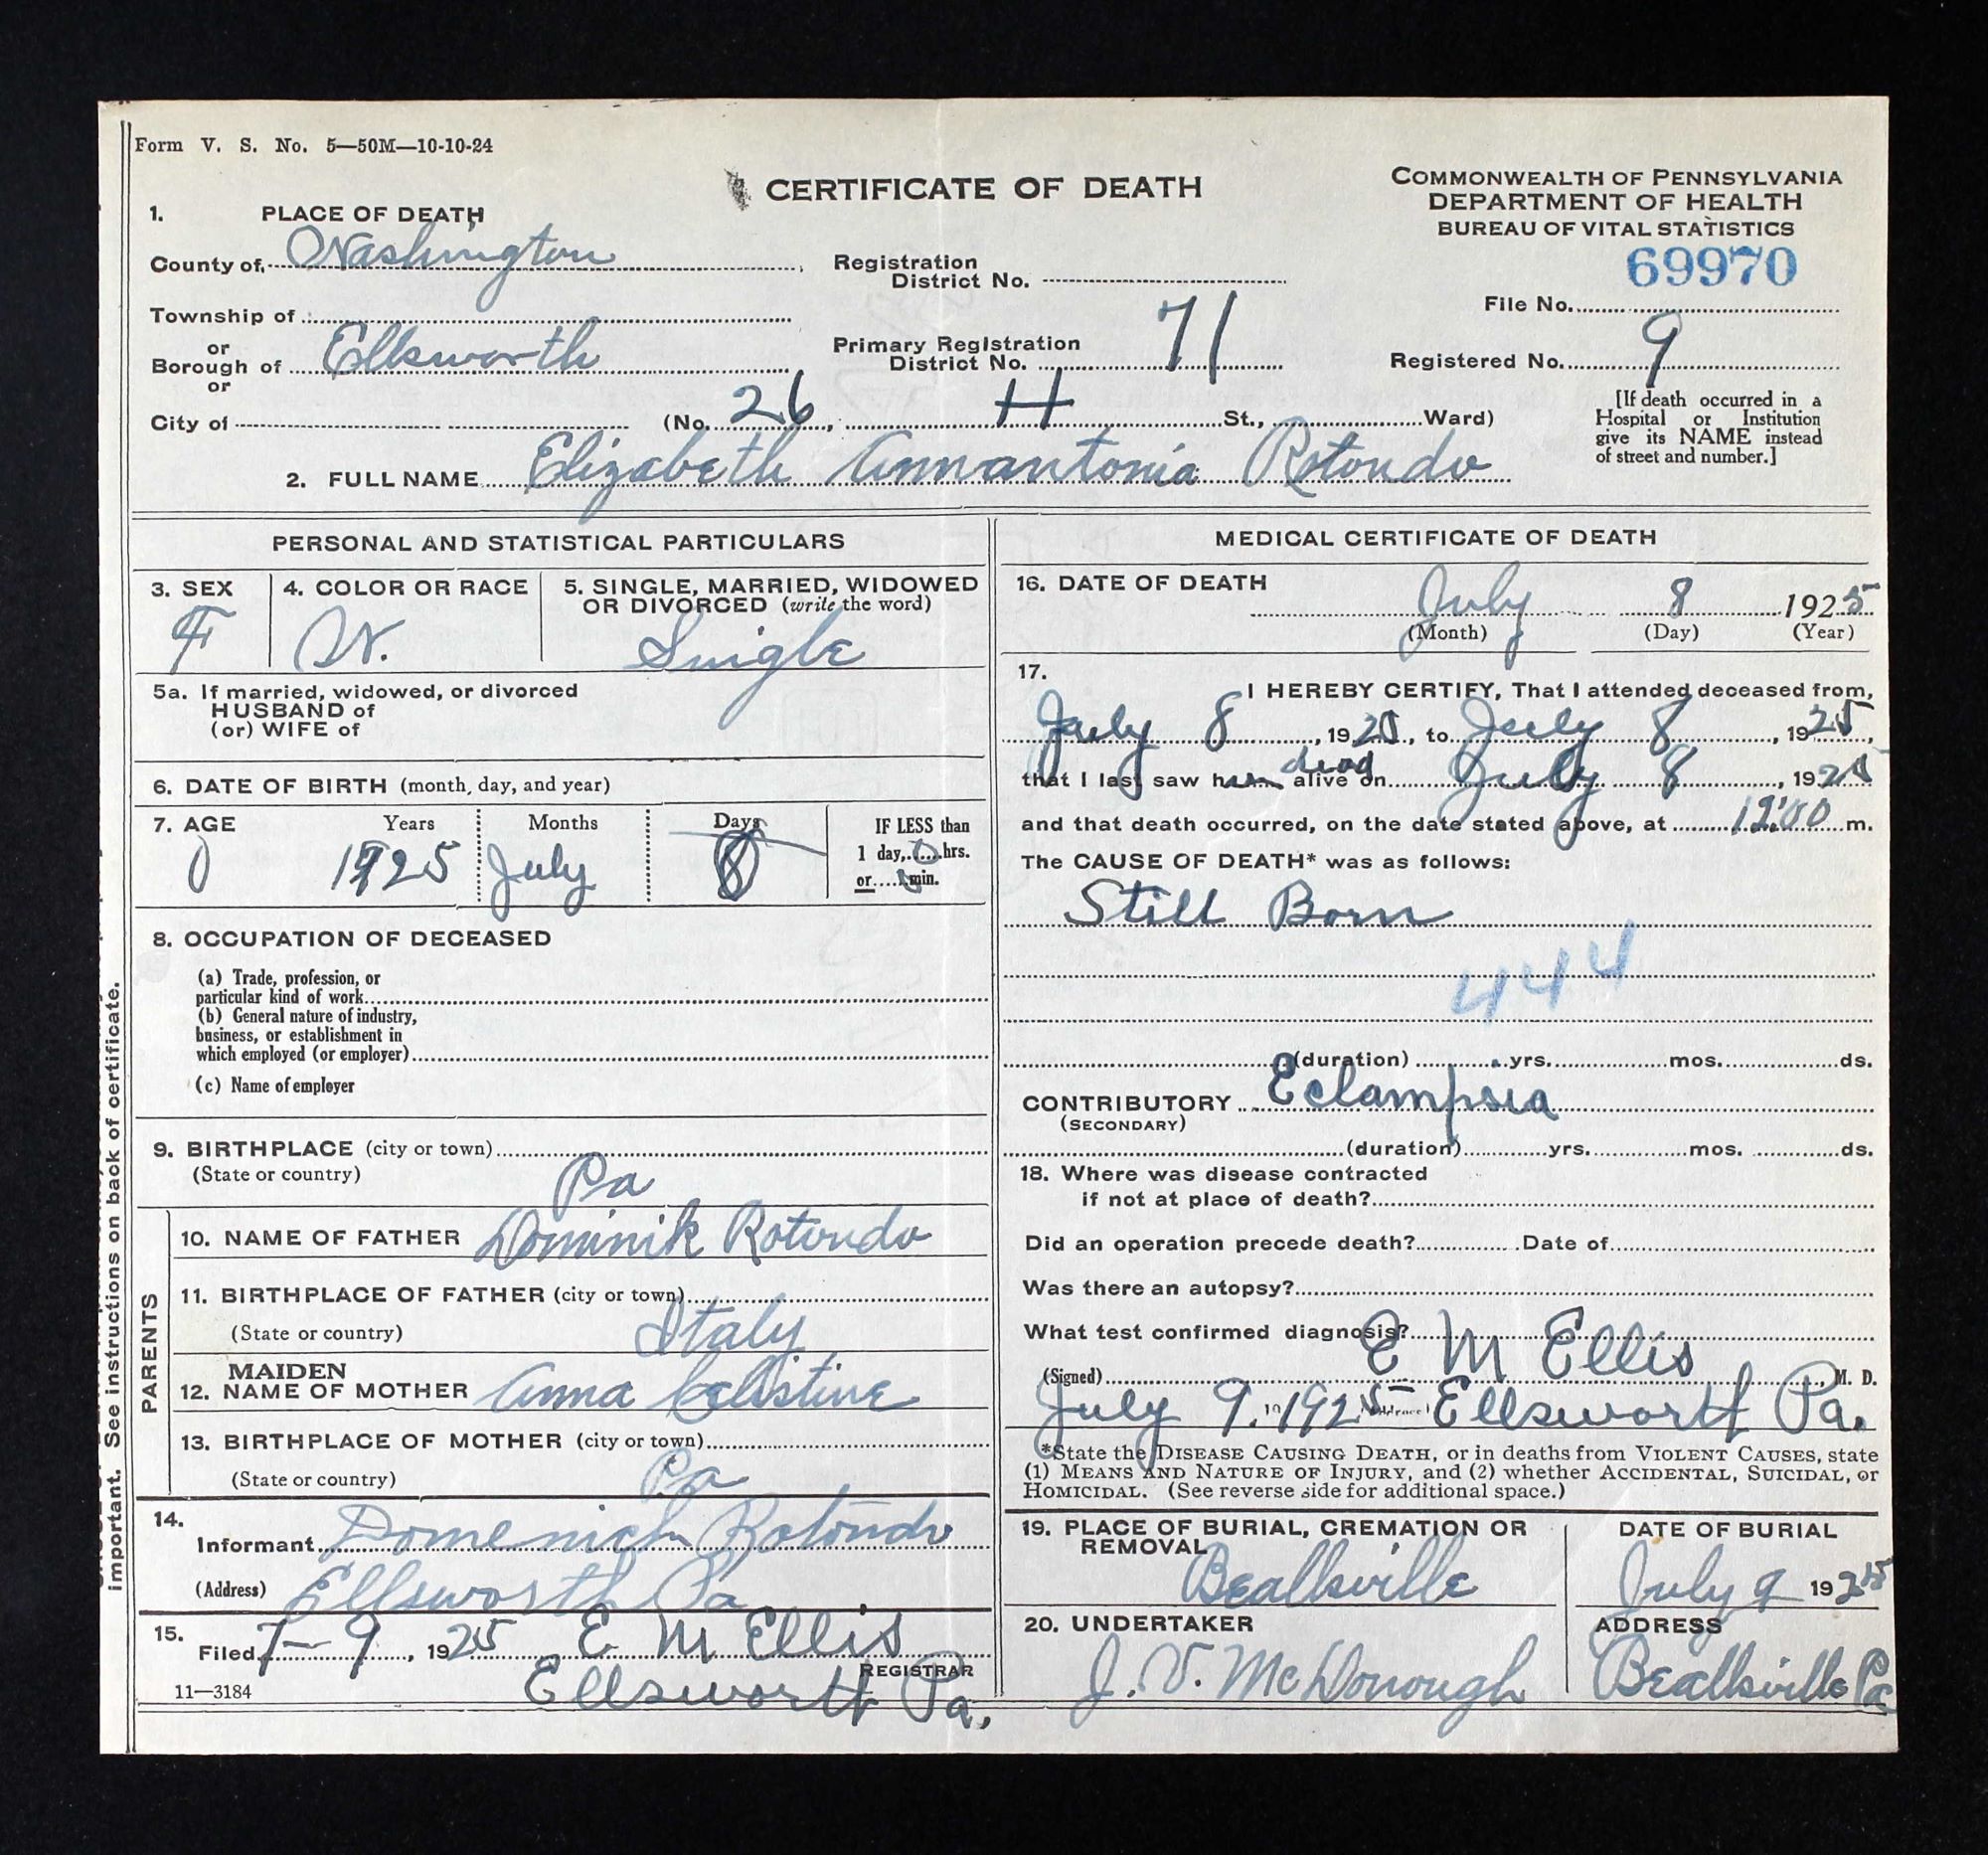 Form V. S. No. 5—50M—10-10-24
CERTIFICATE OF DEATH
COMMONWEALTH OF PENNSYLVANIA
DEPARTMENT OF HEALTH
BUREAU OF VITAL STATISTICS
69970
File No.
Registered No. 9
[If death occurred in a
Hospital or Institution
give its NAME instead
of street and number.]
1. PLACE OF DEATH
County of Washington
Township of
or
Borough of Ellsworth
or
City of
Registration
District No.
Primary Registration
District No. 71
(No. 26, H St., Ward)
2. FULL NAME Elizabeth Annantonia Rotondo
PERSONAL AND STATISTICAL PARTICULARS
3. SEX
F
4. COLOR OR RACE
W.
5. SINGLE, MARRIED, WIDOWED
OR DIVORCED (write the word)
Single
5a. If married, widowed, or divorced
HUSBAND of
(or) WIFE of
6. DATE OF BIRTH (month, day, and year)
7. AGE Years Months Days
0 1925 July 8
IF LESS than
1 day, hrs.
or min.
8. OCCUPATION OF DECEASED
(a) Trade, profession, or
particular kind of work
(b) General nature of industry,
business, or establishment in
which employed (or employer)
(c) Name of employer
9. BIRTHPLACE (city or town)
(State or country) Pa
PARENTS
10. NAME OF FATHER Dominik Rotondo
11. BIRTHPLACE OF FATHER (city or town)
(State or country) Italy
MAIDEN
12. NAME OF MOTHER Anna
13. BIRTHPLACE OF MOTHER (city or town)
(State or country) Pa
14.
Informant Domenich Rotondo
(Address) Ellsworth Pa
15.
Filed 7-9, 1925 E M Ellis
REGISTRAR
11—3184 Ellsworth Pa.
MEDICAL CERTIFICATE OF DEATH
16. DATE OF DEATH
July 8 1925
(Month) (Day) (Year)
17.
I HEREBY CERTIFY, That I attended deceased from,
July 8, 1925, to July 8, 1925,
dead
that I last saw h alive on July 8, 1925
and that death occurred, on the date stated above, at 12:00 m.
The CAUSE OF DEATH* was as follows:
Still Born
444
(duration) yrs. mos. ds.
CONTRIBUTORY Eclampsia
(SECONDARY)
(duration) yrs. mos. ds.
18. Where was disease contracted
if not at place of death?
Did an operation precede death? Date of
Was there an autopsy?
What test confirmed diagnosis?
(Signed) E M Ellis M. D.
July 9. 1925 Ellsworth Pa.
*State the DISEASE CAUSING DEATH, or in deaths from VIOLENT CAUSES, state
(1) MEANS AND NATURE OF INJURY, and (2) whether ACCIDENTAL, SUICIDAL, or
HOMICIDAL. (See reverse side for additional space.)
19. PLACE OF BURIAL, CREMATION OR
REMOVAL
Beallsville
DATE OF BURIAL
July 9 1925
20. UNDERTAKER
J. V. McDonough
ADDRESS
Beallsville Pa
important. See instructions on back of certificate.